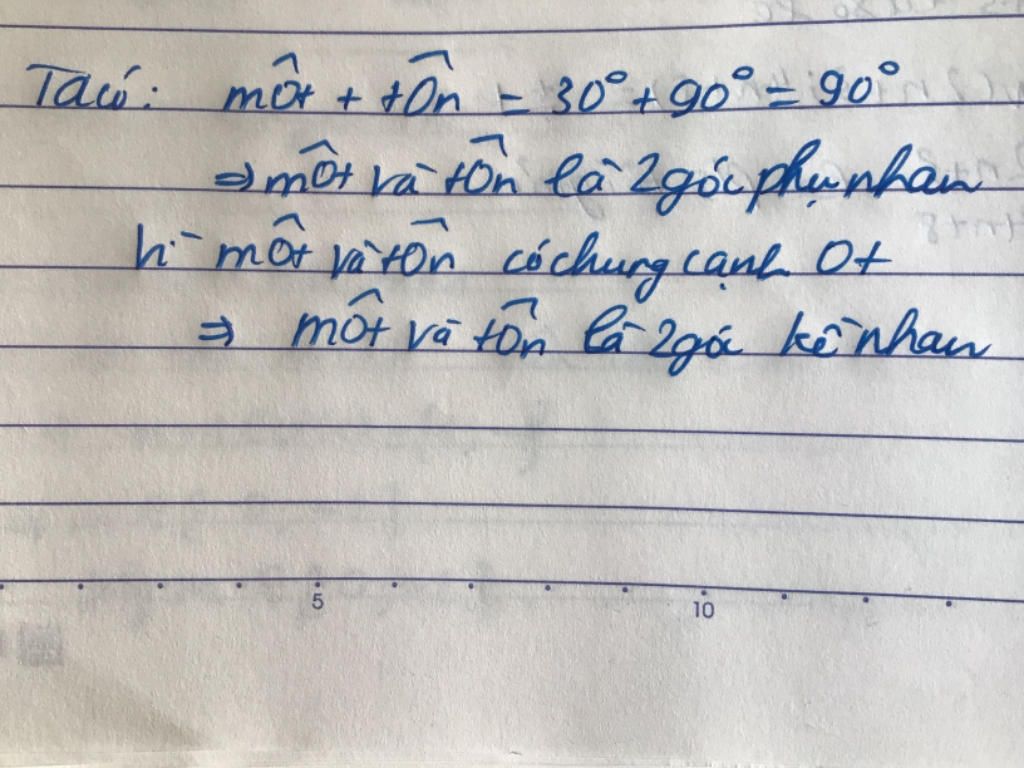 Ta có: mÔt + tÔn = 30° + 90° = 90°
⇒ mÔt và tÔn là 2 góc phụ nhau
mÔt và tÔn có chung cạnh Ot
⇒ mÔt và tÔn là 2 góc kề nhau
5 10